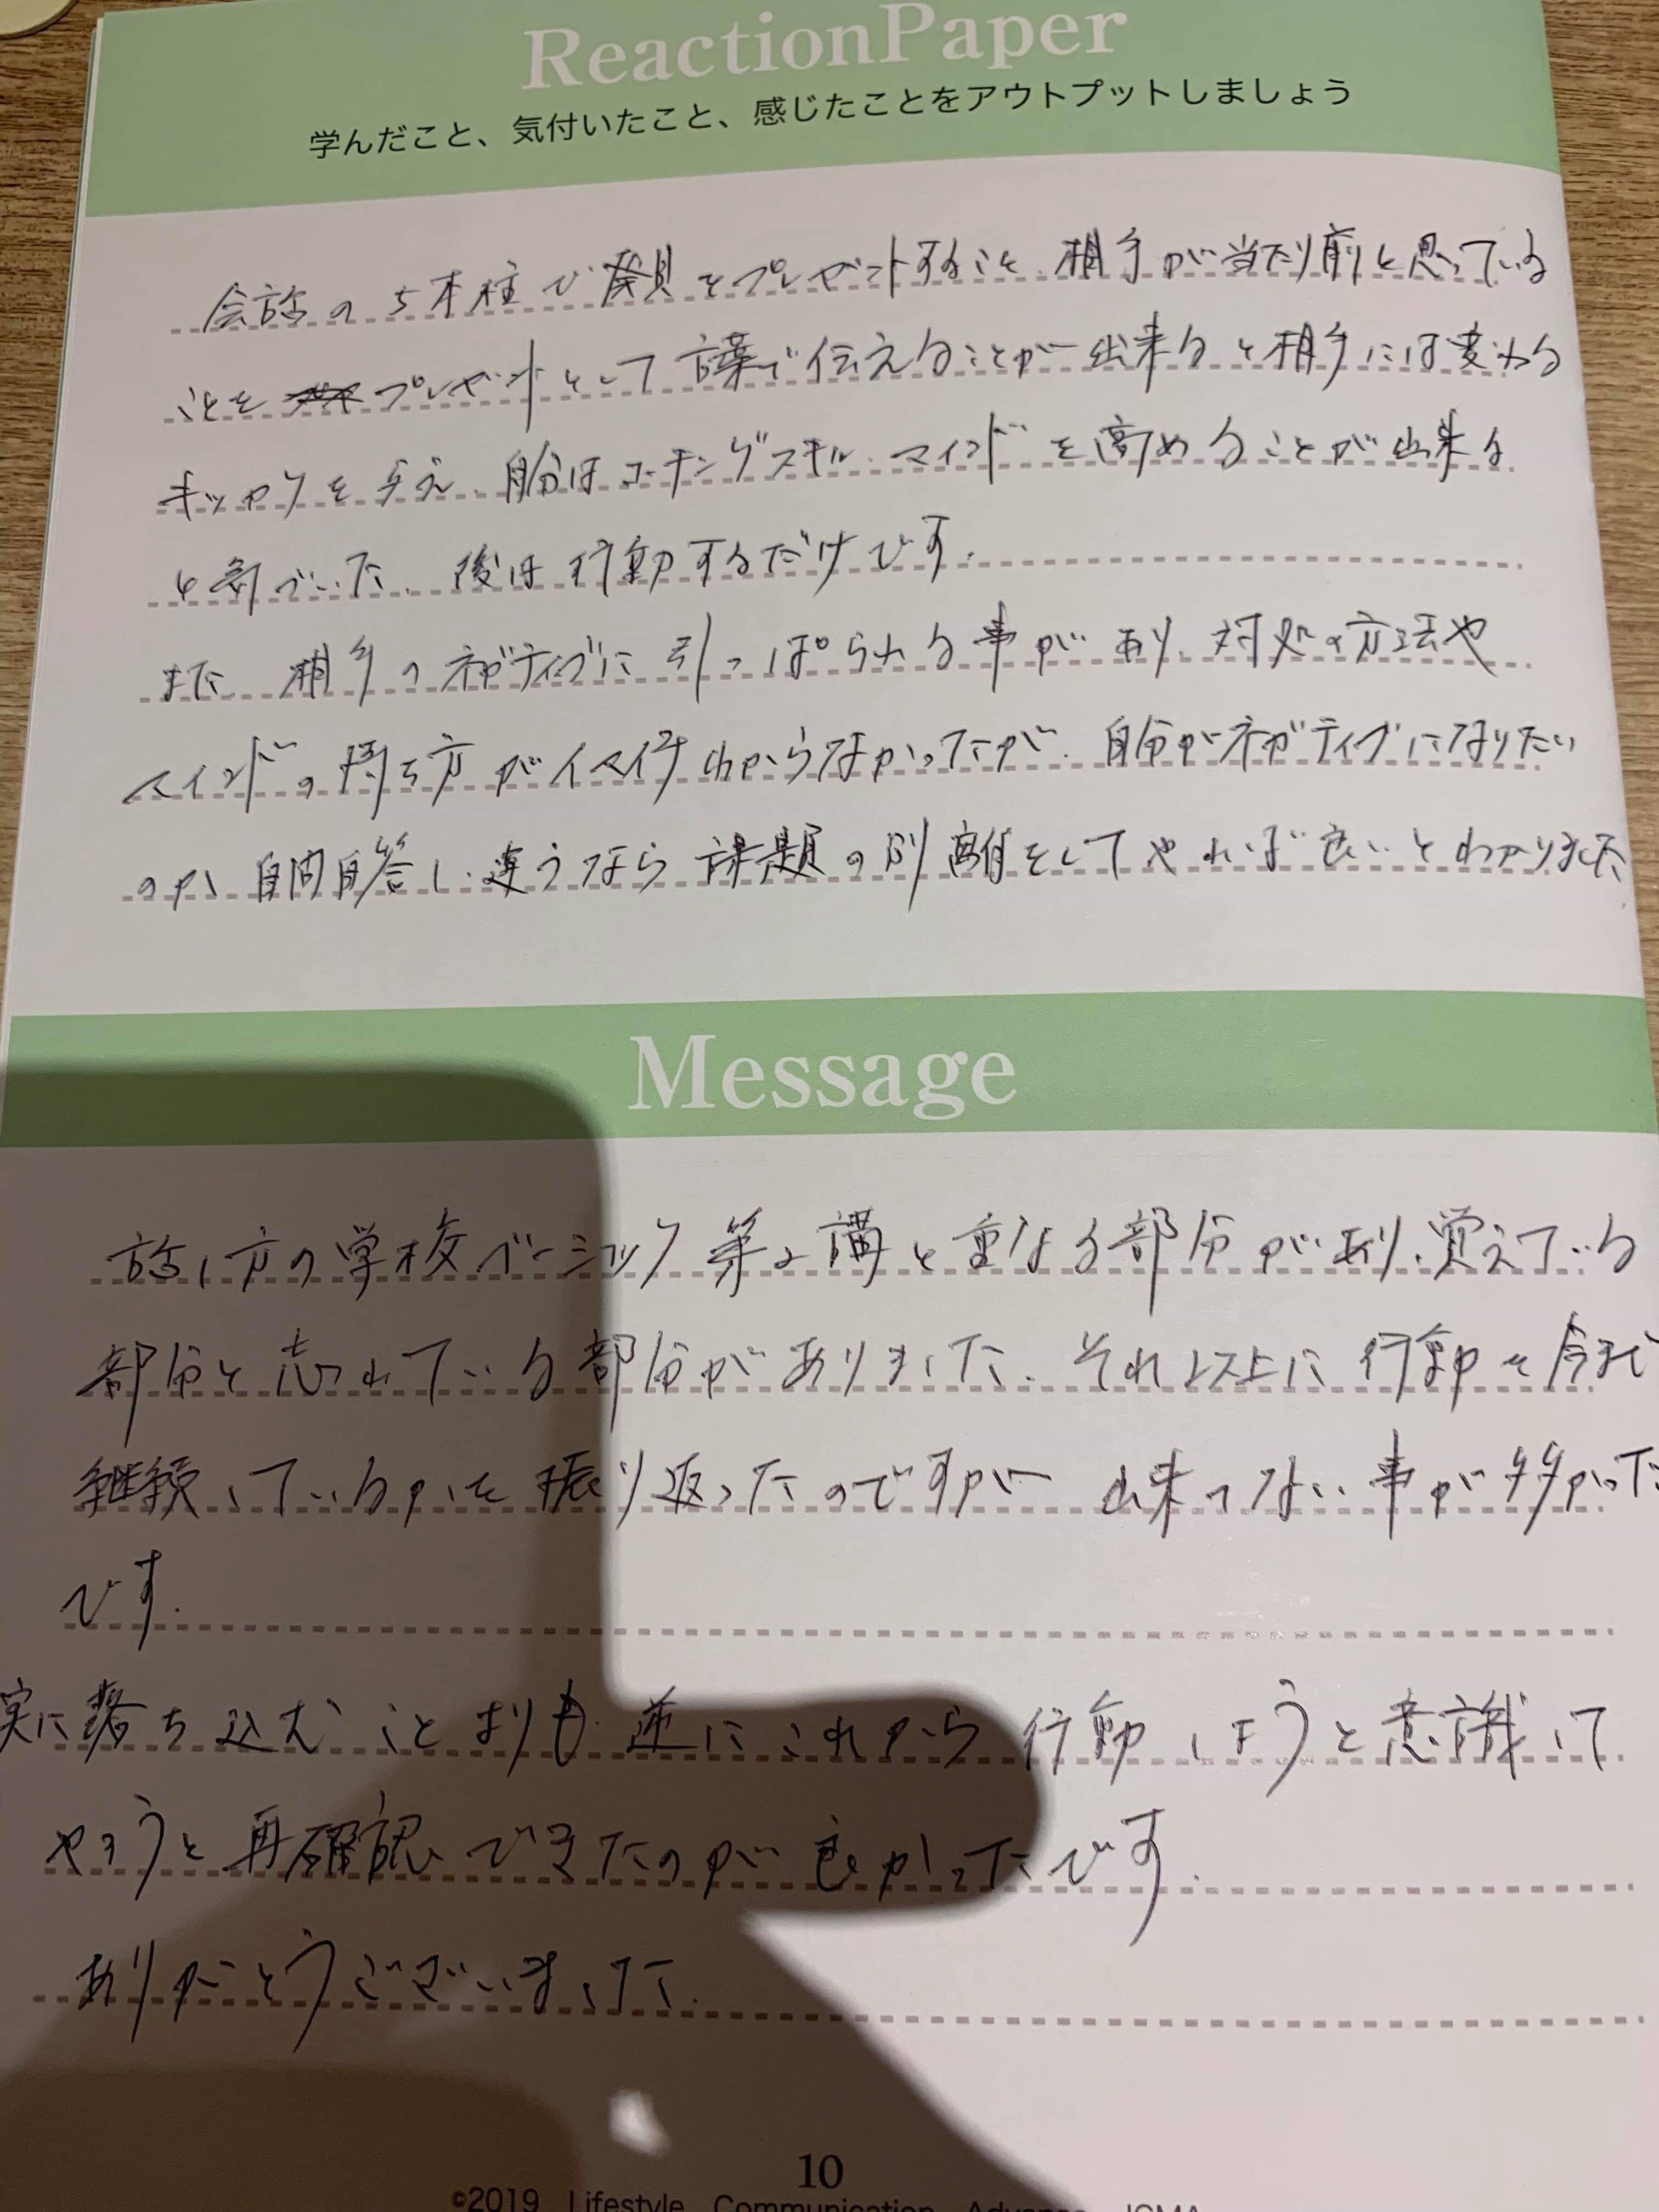 ReactionPaper
学んだこと、気付いたこと、感じたことをアウトプットしましょう
会話の5本柱で発見をプレゼントすること、相手が当たり前と思っている
ことをプレゼントとして言葉で伝えることが出来ると相手には変わる
キッカケを与え、自分はコーチングスキル、マインドを高めることが出来る
後は行動するだけです。
また、相手のネガティブに引っぱられる事があり、対処の方法や
マインドの持ち方がイマイチわからなかったが、自分がネガティブになりたい
のか自問自答し、違うなら課題の分離をしてやれば良いとわかりました
Message
話し方の学校ベーシック第2講と重なる部分があり、覚えている
部分と忘れている部分がありました。それ以上に行動を今まで
継続しているかを振り返ったのですが出来てない事が多かった
です。
実に落ち込むことよりも逆にこれから行動しようと意識して
やろうと再確認できたのが良かったです。
ありがとうございました。
10
©2019 Lifestyle Communication Advance JCMA